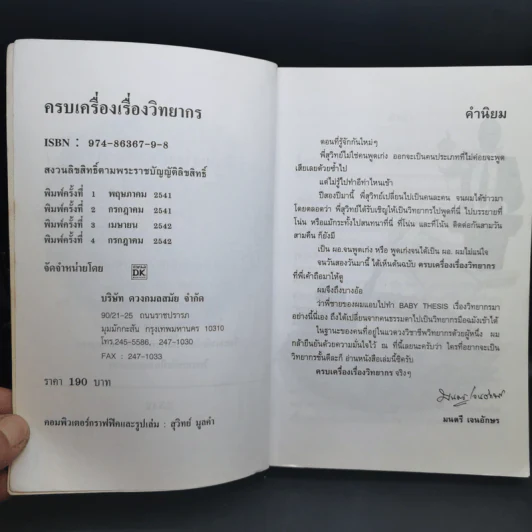 ครบเครื่องเรื่องวิทยากร
ISBN : 974-86367-9-8
สงวนลิขสิทธิ์ตามพระราชบัญญัติลิขสิทธิ์
พิมพ์ครั้งที่ 1 พฤษภาคม 2541
พิมพ์ครั้งที่ 2 กรกฎาคม 2541
พิมพ์ครั้งที่ 3 เมษายน 2542
พิมพ์ครั้งที่ 4 กรกฎาคม 2542
จัดจำหน่ายโดย
DK
บริษัท ดวงกมลสมัย จำกัด
90/21-25 ถนนราชปรารภ
มุมมักกะสัน กรุงเทพมหานคร 10310
โทร.245-5586, 247-1030
FAX : 247-1033
ราคา 190 บาท
คอมพิวเตอร์กราฟฟิคและรูปเล่ม : สุวิทย์ มูลคำ
คำนิยม
ตอนที่รู้จักกันใหม่ๆ
พี่สุวิทย์ไม่ใช่คนพูดเก่ง ออกจะเป็นคนประเภทที่ไม่ค่อยจะพูด
เสียเลยด้วยซ้ำไป
แต่ไม่รู้ไปทำอีท่าไหนเข้า
ปีสองปีมานี้ พี่สุวิทย์เปลี่ยนไปเป็นคนละคน จนผมได้ข่าวมา
โดยตลอดว่า พี่สุวิทย์ได้รับเชิญให้เป็นวิทยากรไปพูดที่นี่ ไปบรรยายที่
โน่น หรือแม้กระทั่งไปสนทนาที่นี่ ที่โน่น และที่โน้น ติดต่อกันสามวัน
สามคืน ก็ยังมี
เป็น ผอ.จนพูดเก่ง หรือ พูดเก่งจนได้เป็น ผอ. ผมไม่แน่ใจ
จนวันสองวันมานี้ ได้เห็นต้นฉบับ ครบเครื่องเรื่องวิทยากร
ที่พี่เค้าถือมาให้ดู
ผมจึงถึงบางอ้อ
ว่าพี่ชายของผมแอบไปทำ BABY THESIS เรื่องวิทยากรมา
อย่างนี้นี่เอง ถึงได้เปลี่ยนจากคนธรรมดาไปเป็นวิทยากรมือฉมังเข้าได้
ในฐานะของคนที่อยู่ในแวดวงวิชาชีพวิทยากรด้วยผู้หนึ่ง ผม
กล้ายืนยันด้วยความมั่นใจไว้ ณ ที่นี้เลยนะครับว่า ใครที่อยากจะเป็น
วิทยากรขั้นดีละก็ อ่านหนังสือเล่มนี้ซีครับ
ครบเครื่องเรื่องวิทยากร จริงๆ
มนตรี เจนอักษร